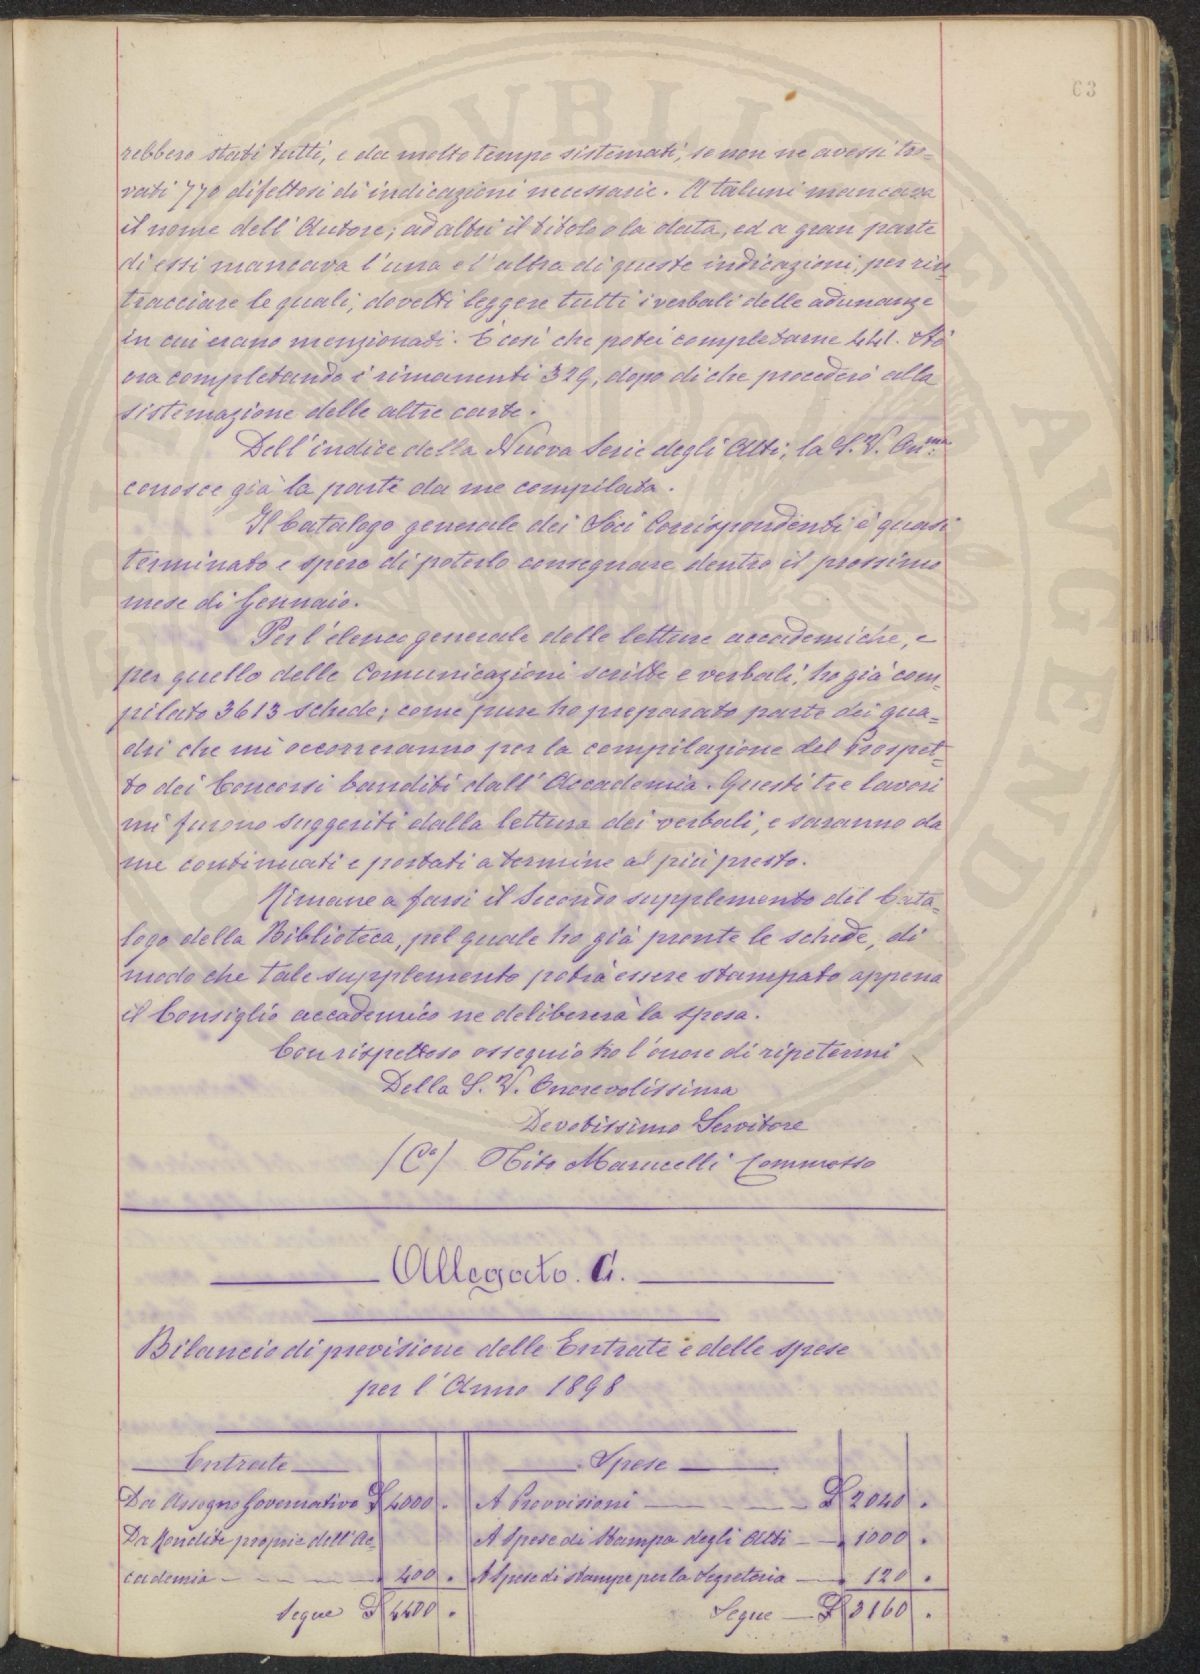 63
rebbero stati tutti, e da molto tempo sistemati, se non ne avessi tro=
vati 770 difettosi di indicazioni necessarie. A taluni mancava
il nome dell'Autore; ad altri il titolo o la data, ed a gran parte
di essi mancava l'una e l'altra di queste indicazioni, per rin=
tracciare le quali, dovetti leggere tutti i verbali delle adunanze
in cui erano menzionati. È così che potei completarne 441. Sto
ora completando i rimanenti 329, dopo di che procederò alla
sistemazione delle altre carte.
Dell'indice della Nuova Serie degli Atti, la S. V. On.ma
conosce già la parte da me compilata.
Il Catalogo generale dei Soci Corrispondenti è quasi
terminato e spero di poterlo consegnare dentro il prossimo
mese di Gennaio.
Per l'elenco generale delle letture accademiche, e
per quello delle Comunicazioni scritte e verbali, ho già com=
pilato 3613 schede; come pure ho preparato parte dei qua=
dri che mi occorreranno per la compilazione del Prospet=
to dei Concorsi banditi dall'Accademia. Questi tre lavori
mi furono suggeriti dalla lettura dei verbali, e saranno da
me continuati e portati a termine al più presto.
Rimane a farsi il Secondo supplemento del Cata=
logo della Biblioteca, pel quale ho già pronte le schede, di
modo che tale supplemento potrà essere stampato appena
il Consiglio accademico ne delibererà la spesa.
Con rispettoso ossequio ho l'onore di ripetermi
Della S. V. Onorevolissima
Devotissimo Servitore
(Co) Tito Marucelli Commesso
Allegato. C.
Bilancio di previsione delle Entrate e delle spese
per l'Anno 1898
Entrate Spese
Da Assegno Governativo £ 4000 . A Provvisioni £ 2040 .
Da Rendite proprie dell'Ac= A Spese di Stampa degli Atti 1000 .
cademia 400 . A Spese di stampe per la Segreteria 120 .
Segue £ 4400 . Segue £ 3160 .